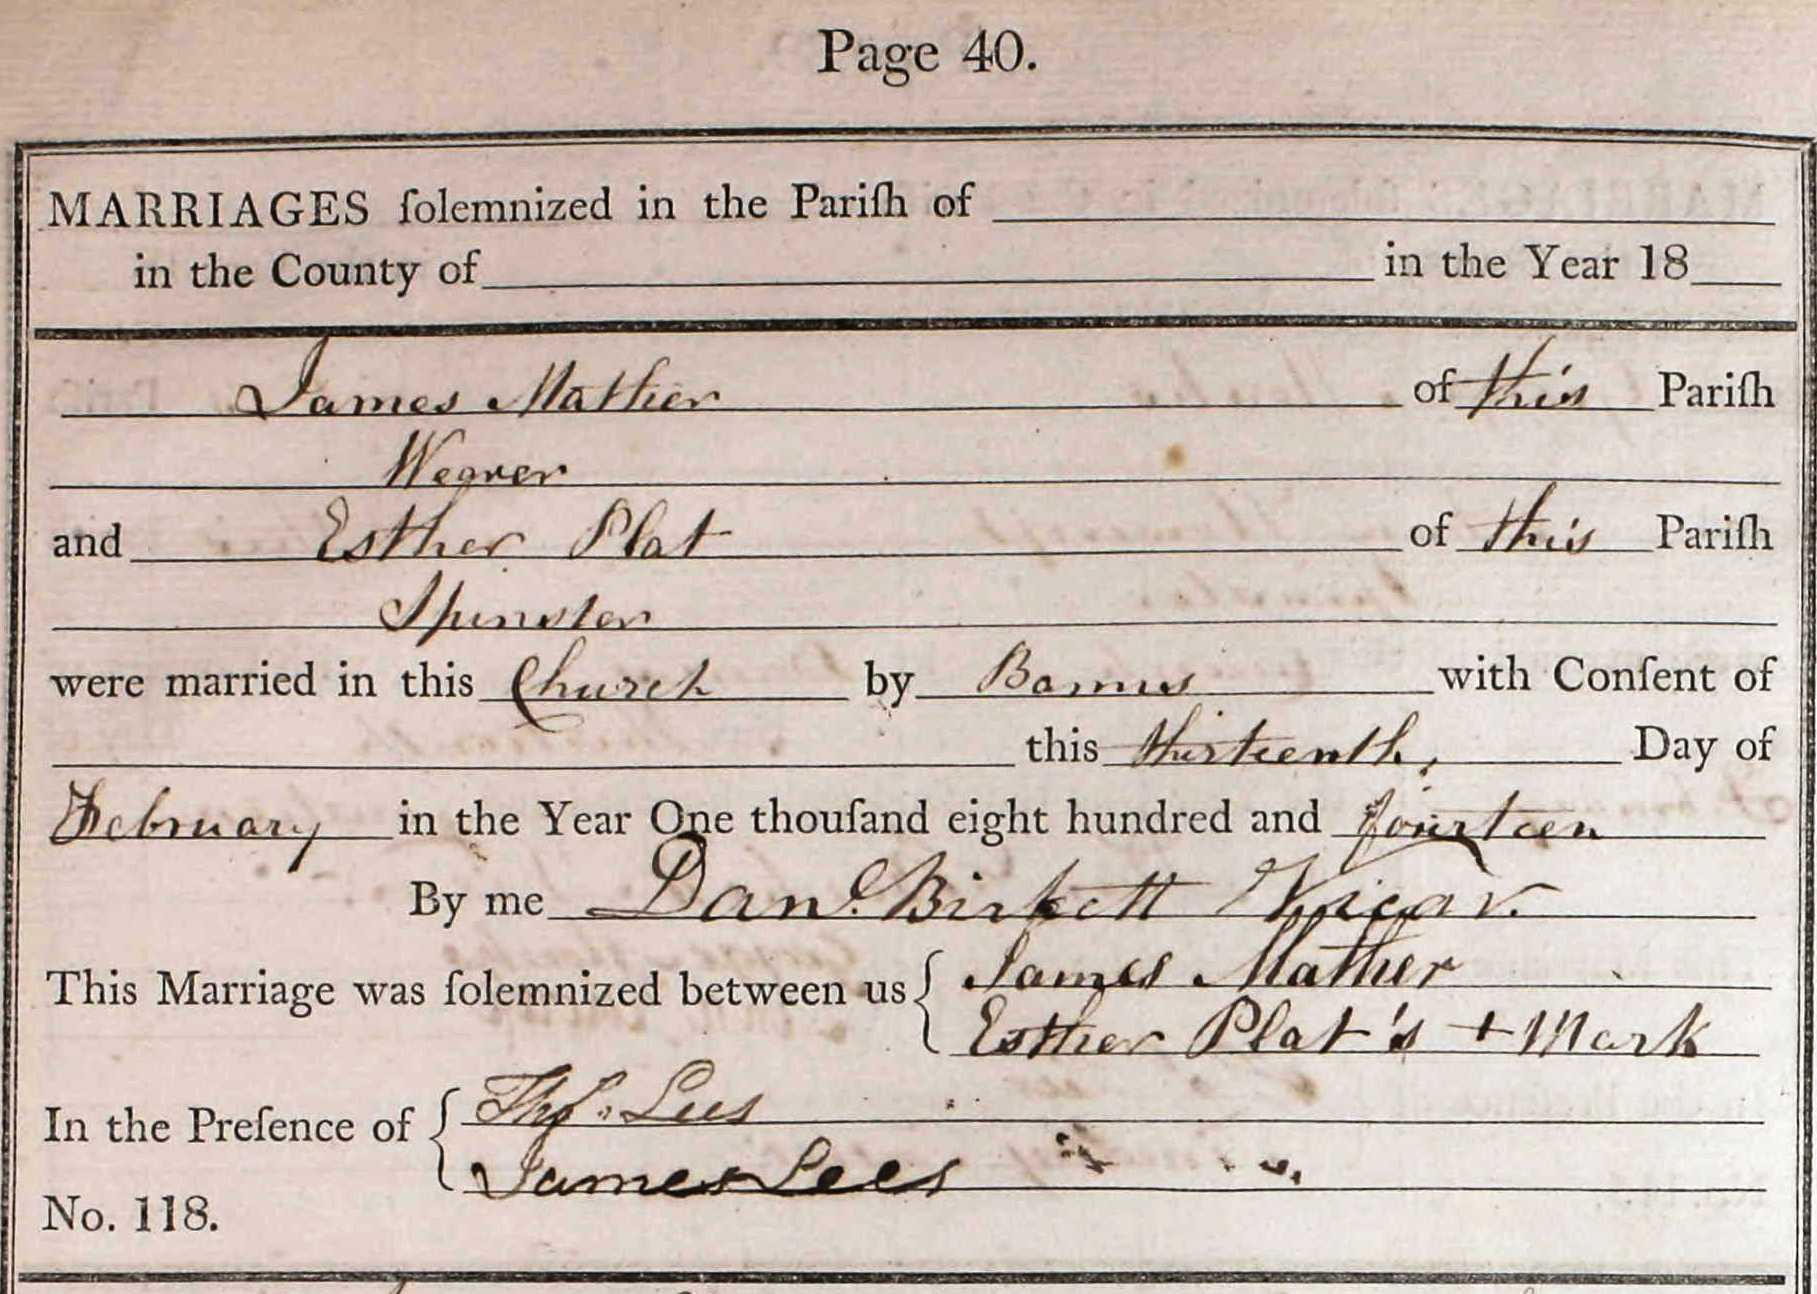 Page 40.
MARRIAGES ſolemnized in the Pariſh of
in the County of in the Year 18
James Mather of this Pariſh
Weaver
and Esther Plat of this Pariſh
Spinster
were married in this Church by Banns with Conſent of
this thirteenth, Day of
February in the Year One thouſand eight hundred and fourteen
By me Danl. Birkett Vicar.
This Marriage was ſolemnized between us { James Mather
Esther Plat's + Mark
In the Preſence of { Thoſ. Lees
James Lees
No. 118.